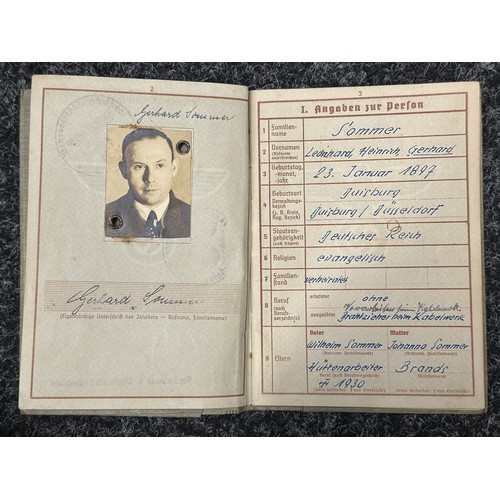 2
Gerhard Sommer
Gerhard Sommer
(Eigenhändige Unterschrift des Inhabers — Rufname, Familienname)
3
I. Angaben zur Person
1 Familien-
name
Sommer
2 Vornamen
(Rufname
unterstreichen)
Leonhard, Heinrich, Gerhard
3 Geburtstag,
-monat,
-jahr
23. Januar 1897
4 Geburtsort
Verwaltungs-
bezirk
(z. B. Kreis,
Reg. Bezirk)
Duisburg
Duisburg / Düsseldorf
5 Staatsan-
gehörigkeit
(auch frühere)
Deutsches Reich
6 Religion
evangelisch
7 Familien-
stand
verheiratet
8 Beruf
(nach
Berufs-
verzeichnis)
erlernter
ohne
ausgeübter
Drahtzieher beim Kabelwerk
9 Eltern
Vater
Mutter
Wilhelm Sommer
Johanna Sommer
(Rufname, Familienname)
(Rufname, Familienname)
Hüttenarbeiter
Brands
1930